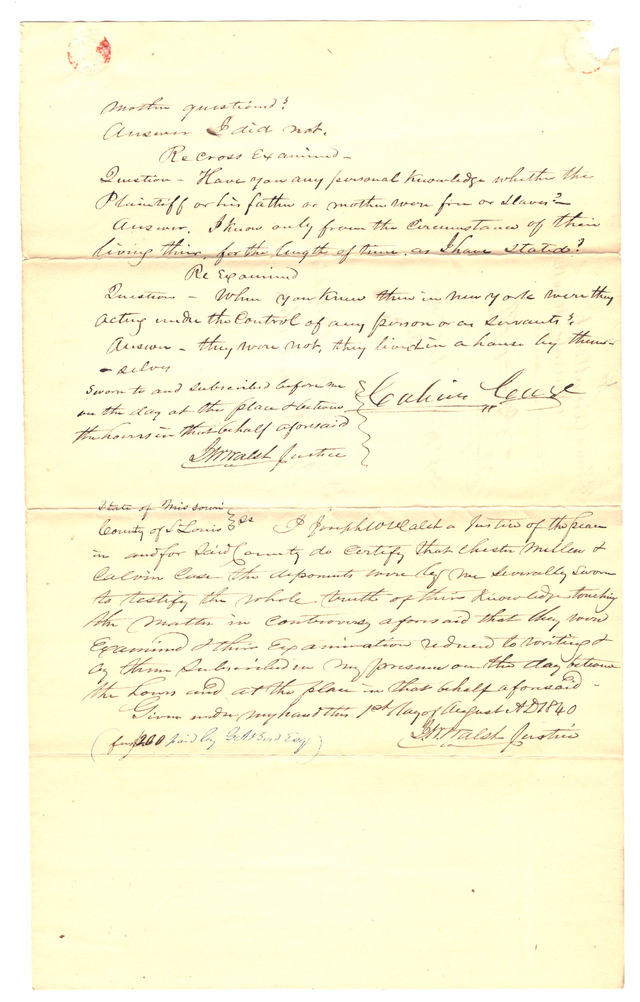 mother questioned?
Answer I did not.
Re Cross Examined –
Question – Have you any personal knowledge whether the
Plaintiff or his father or mother were free or slaves?
Answer. I know only from the circumstance of their
living thus, for the length of time, as I have stated?
Re Examined
Question – When you knew them in New York were they
acting under the control of any person or as servants?
Answer – they were not, they lived in a house by them-
- selves
Sworn to and subscribed before me
on the day at the place & between
the hours in that behalf aforesaid
Calvin Case
J W Walsh Justice
State of Missouri
County of St Louis } ss I Joseph W Walsh a Justice of the peace
in and for said County do certify that Chester Miller &
Calvin Case the deponents were by me severally sworn
to testify the whole truth of their knowledge touching
the matter in controversy aforesaid that they were
Examined & their Examination reduced to writing &
by them subscribed in my presence on the day between
the hours and at the place in that behalf aforesaid –
Given under my hand this 1st day of August AD 1840
J W. Walsh Justice
(fees 2.00 paid by Esq)